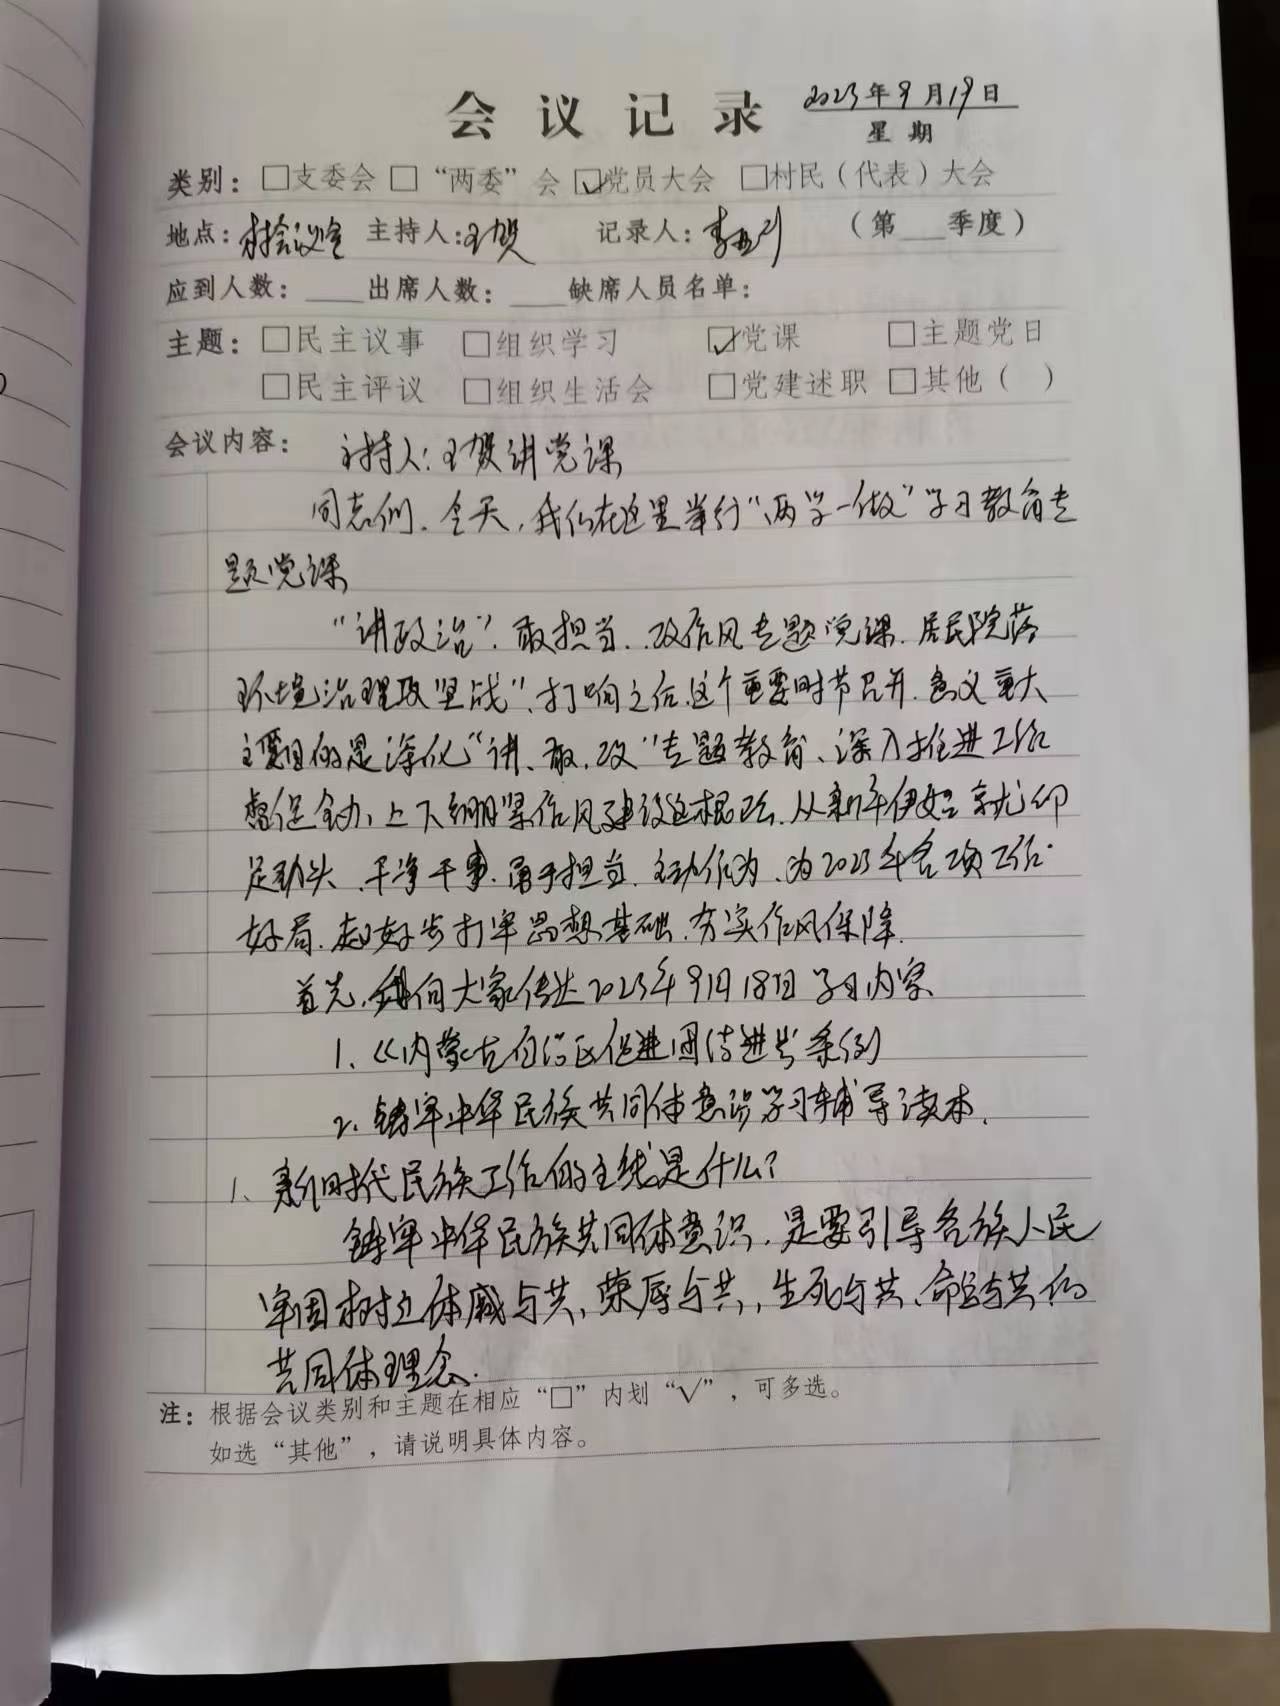 会议记录 2023年9月19日
星期
类别：□支委会 □“两委”会 ☑党员大会 □村民（代表）大会
地点：村会议室 主持人：王贺 记录人：李 （第___季度）
应到人数：____出席人数：____缺席人员名单：
主题：□民主议事 □组织学习 ☑党课 □主题党日
□民主评议 □组织生活会 □党建述职 □其他（ ）
会议内容： 主持人：王贺讲党课
同志们、今天，我们在这里举行“两学一做”学习教育专
题党课
“讲政治”、敢担当、改作风专题党课、居民院落
环境治理攻坚战”、打响之后、这个重要时节召开、意义重大
主要目的是深化“讲、敢、改”专题教育、深入推进工作
上下绷紧作风建设这根弦、从新年伊始就卯
足劲头、干净干事、勇于担当、主动作为、为2023年各项工作
好局、起好步打牢思想基础、夯实作风保障.
首先、向大家传达2023年9月18日学习内容
1、《内蒙古自治区促进团结进步条例》
2、铸牢中华民族共同体意识学习辅导读本.
1、新时代民族工作的主线是什么?
铸牢中华民族共同体意识，是要引导各族人民
牢固树立休戚与共、荣辱与共，生死与共、命运与共的
共同体理念.
注：根据会议类别和主题在相应“□”内划“√”，可多选。
如选“其他”，请说明具体内容。